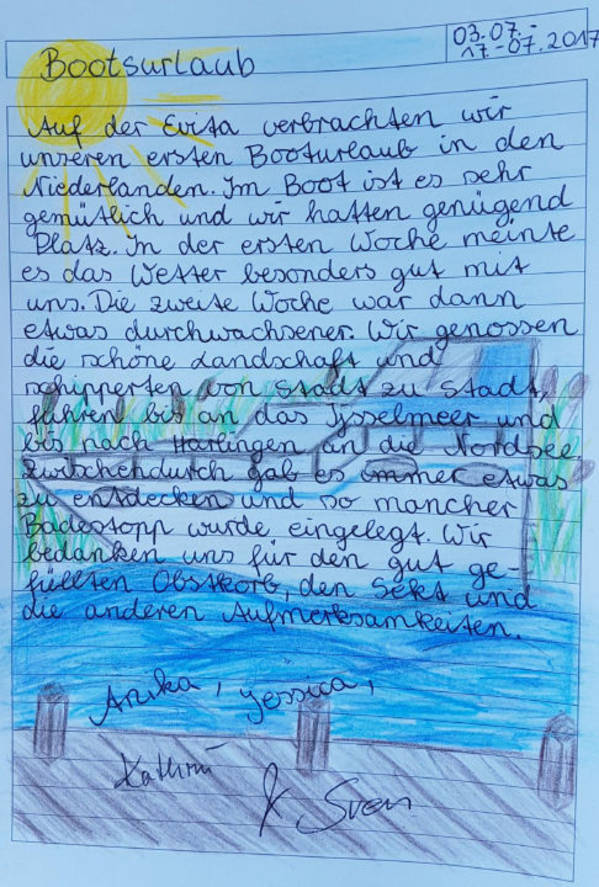 03.07.-
Bootsurlaub 17.-07.2017
Auf der Evita verbrachten wir
unseren ersten Booturlaub in den
Niederlanden. Im Boot ist es sehr
gemütlich und wir hatten genügend
Platz. In der ersten Woche meinte
es das Wetter besonders gut mit
uns. Die zweite Woche war dann
etwas durchwachsener. Wir genossen
die schöne Landschaft und
schipperten von Stadt zu Stadt,
fuhren bis an das Ijsselmeer und
bis nach Harlingen an die Nordsee.
Zwischendurch gab es immer etwas
zu entdecken und so mancher
Badestopp wurde eingelegt. Wir
bedanken uns für den gut ge-
füllten Obstkorb, den Sekt und
die anderen Aufmerksamkeiten.
Anika, Jessica,
Kathrin
& Sven